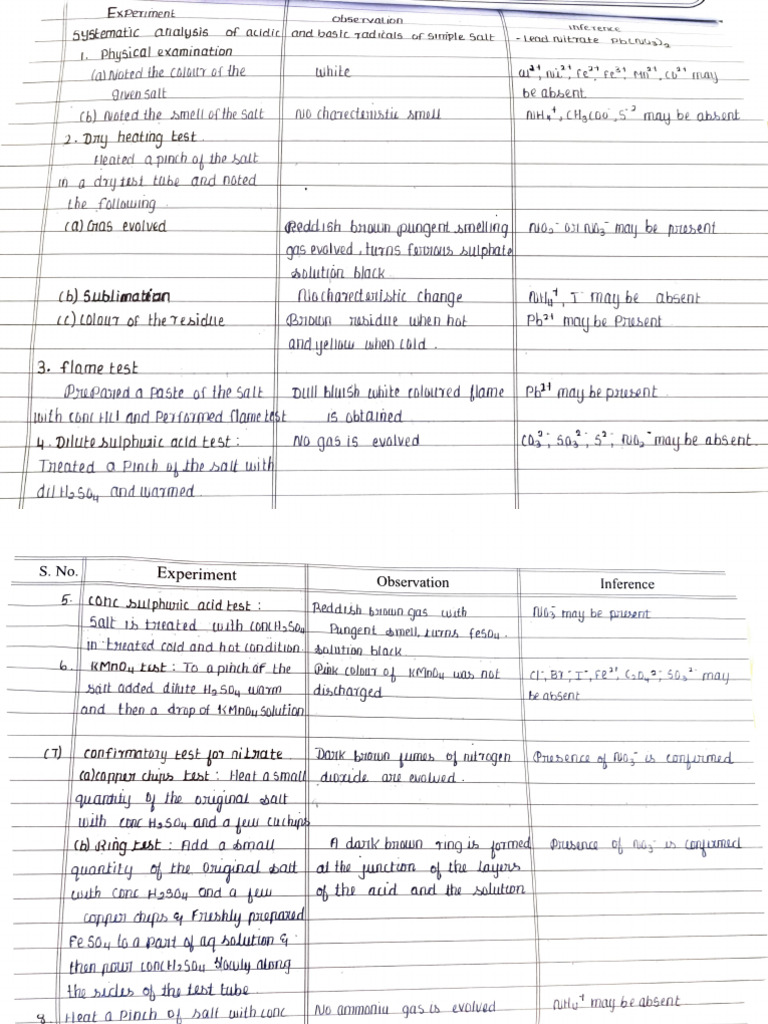 Experiment | Observation | Inference
Systematic analysis of acidic and basic radicals of simple salt - Lead Nitrate Pb(NO3)2
1. Physical examination
(a) Noted the colour of the given salt | White | Cu2+, Ni2+, Fe2+, Fe3+, Mn2+, Co2+ may be absent
(b) Noted the smell of the salt | No charecteristic smell | NH4+, CH3COO-, S-2 may be absent
2. Dry heating test
Heated a pinch of the salt
in a dry test tube and noted
the following
(a) Gas evolved | Reddish brown pungent smelling gas evolved, turns ferrous sulphate solution black | NO2- or NO3- may be present
(b) Sublimation | No charecteristic change | NH4+, I- may be absent
(c) Colour of the residue | Brown residue when hot and yellow when cold. | Pb2+ may be Present
3. flame test
Prepared a paste of the salt with conc HCl and Performed flame test | Dull bluish white coloured flame is obtained | Pb2+ may be present
4. Dilute sulphuric acid test:
Treated a Pinch of the salt with dil H2SO4 and warmed. | No gas is evolved | CO3 2-, SO3 2-, S2-, NO2- may be absent.
S. No. | Experiment | Observation | Inference
5. conc sulphuric acid test:
Salt is treated with conc H2SO4 in treated cold and hot condition | Reddish brown gas with Pungent smell, turns FeSO4. solution black | NO3- may be present
6. KMnO4 test: To a pinch of the salt added dilute H2SO4 warm and then a drop of KMnO4 solution | Pink colour of KMnO4 was not discharged | Cl-, Br-, I-, Fe2+, C2O4 2-, SO3 2- may be absent
(7) confirmatory test for nitrate
(a) copper chips test: Heat a small quantity of the original salt with conc H2SO4 and a few cu chips | Dark brown fumes of nitrogen dioxide are evolved. | Presence of NO3- is confirmed
(b) Ring test: Add a small quantity of the original salt with conc H2SO4 and a few copper chips & Freshly prepared FeSO4 to a part of aq solution & then pour conc H2SO4 slowly along the sides of the test tube | A dark brown ring is formed at the junction of the layers of the acid and the solution | Presence of NO3- is confirmed
8. Heat a pinch of salt with conc | No ammonia gas is evolved | NH4+ may be absent